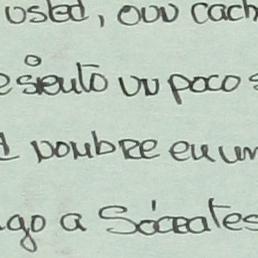 usted, oun cach
e siento un poco s
l nombre en un
go a Sócrates